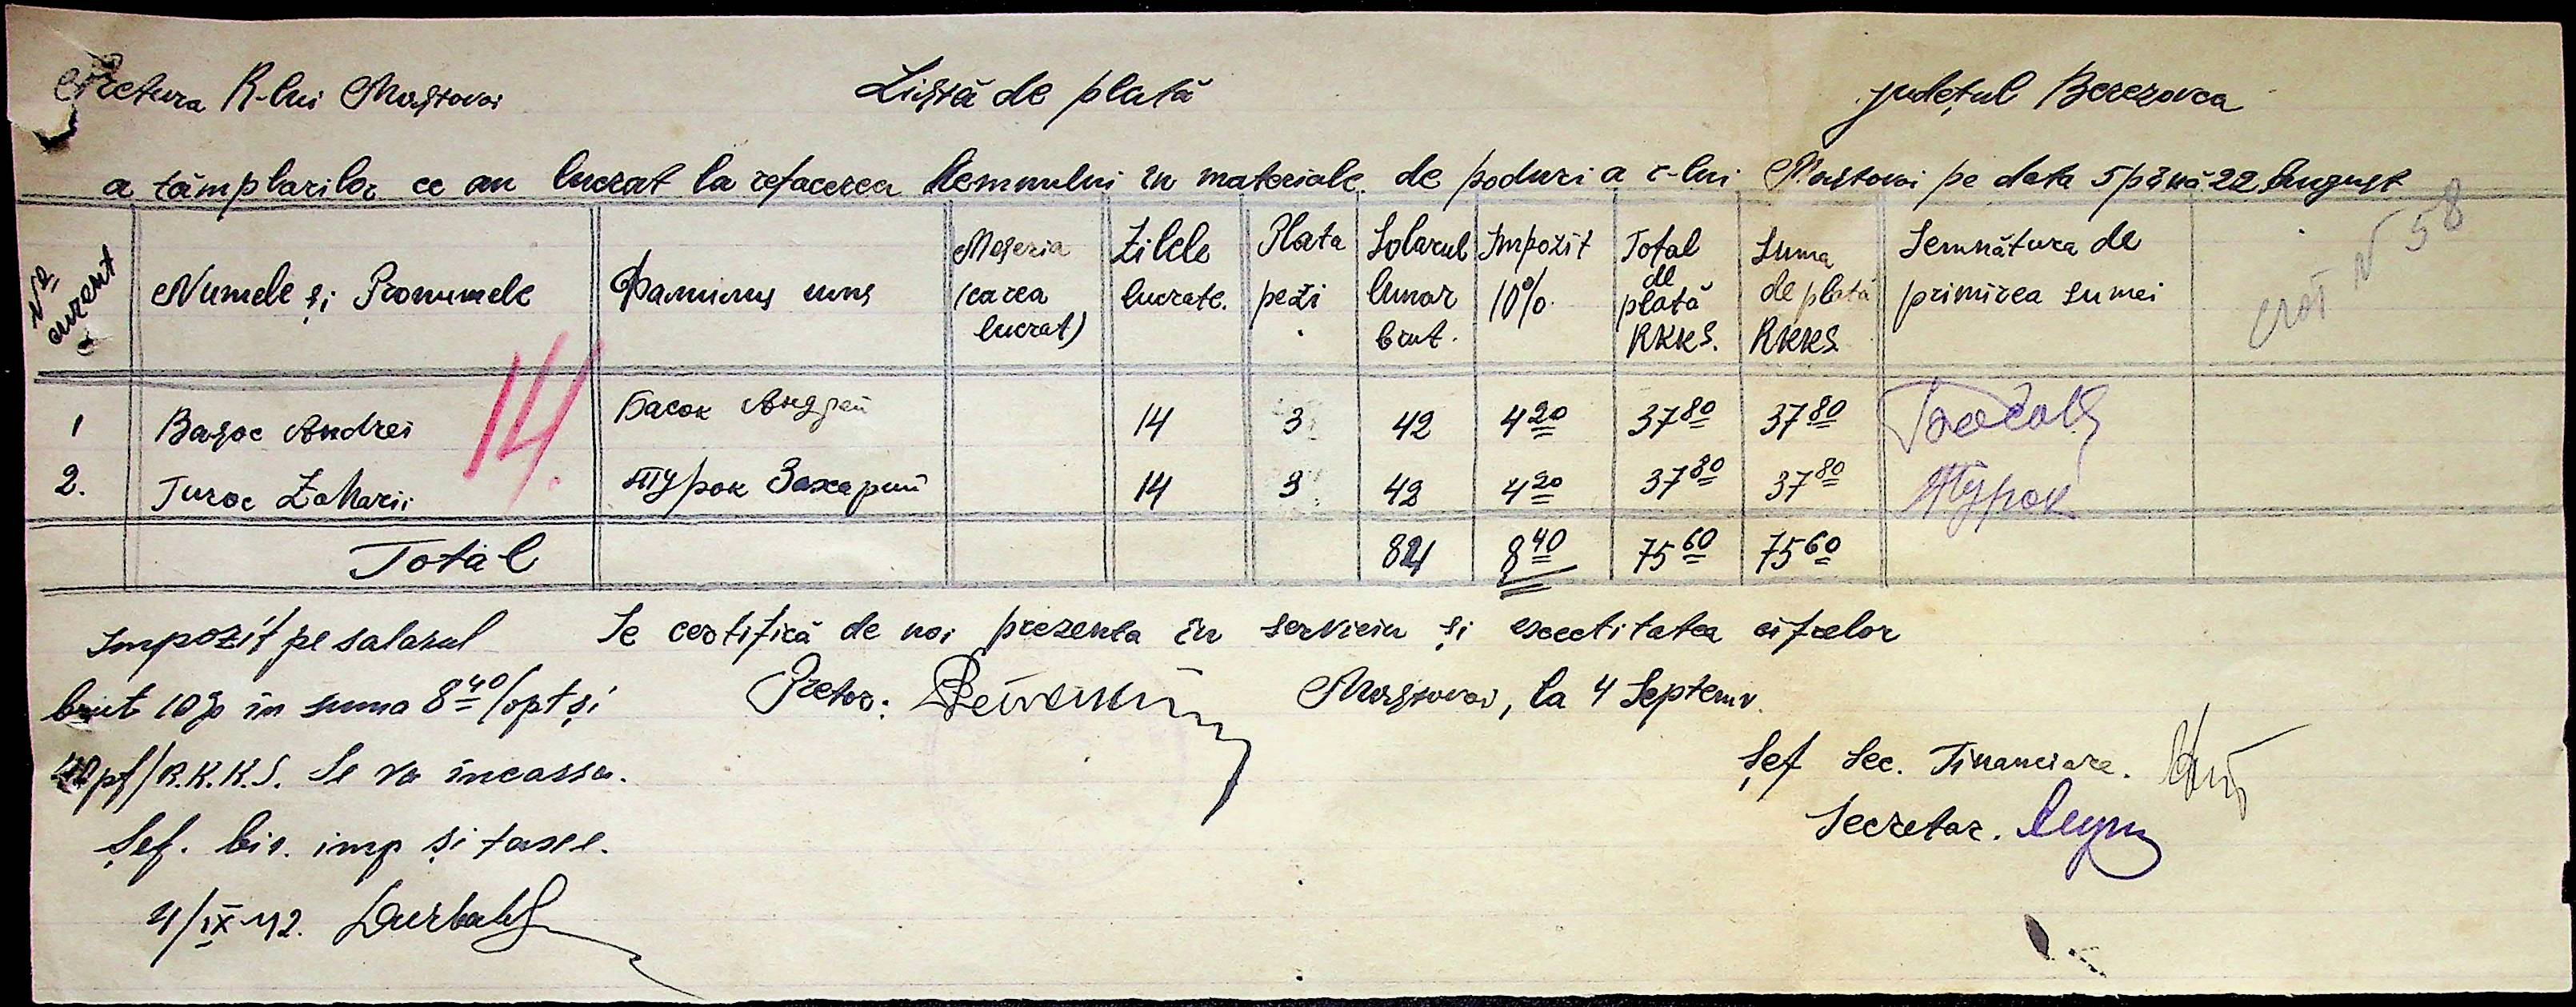 Pretura R-lui Mostovoi Listă de plată județul Berezovca
a tâmplarilor ce au lucrat la refacerea lemnului în materiale de poduri a r-lui Mostovoi pe data 5 până 22 August
№ curent Numele și Pronumele Фамилия имя Meseria (carea lucrat) Zilele lucrate. Plata pe zi Solarul lunar brut. Impozit 10% Total de plată RKKS. Suma de plată RKKS Semnătura de primirea sumei
N 58
14.
1 Basoc Andrei Басок Андрей 14 3 42 4 20 37 80 37 80
2. Turoc Zaharii Турок Захарий 14 3 42 4 20 37 80 37 80 Турок
Total 84 8 40 75 60 75 60
Impozit pe salarul Se certifică de noi prezenta în serviciu și exectitatea cifrelor
brut 10% în suma 8 40 /opt și Pretor: Mostovoi, la 4 Septemv.
40 pf/R.K.K.S. Se va incassa. Șef Sec. Financiare.
Șef. bir. imp și taxe. Secretar.
4/IX-42.